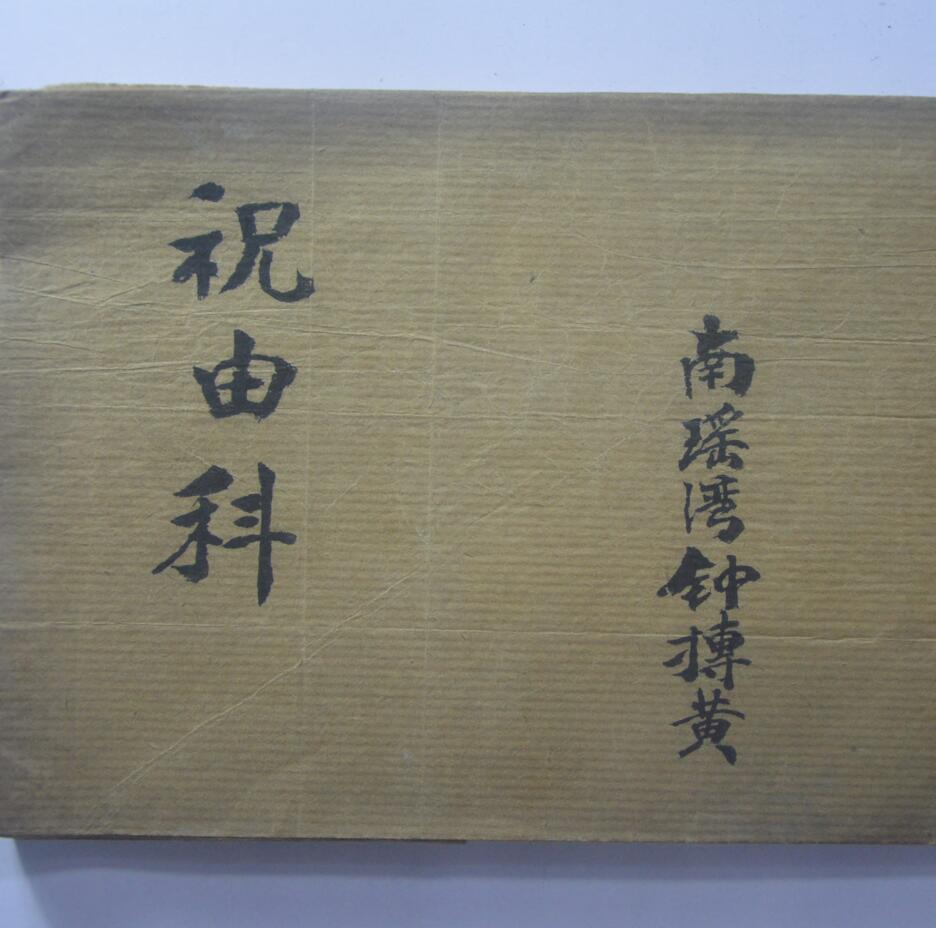 祝由科
南瑶湾钟搏黄